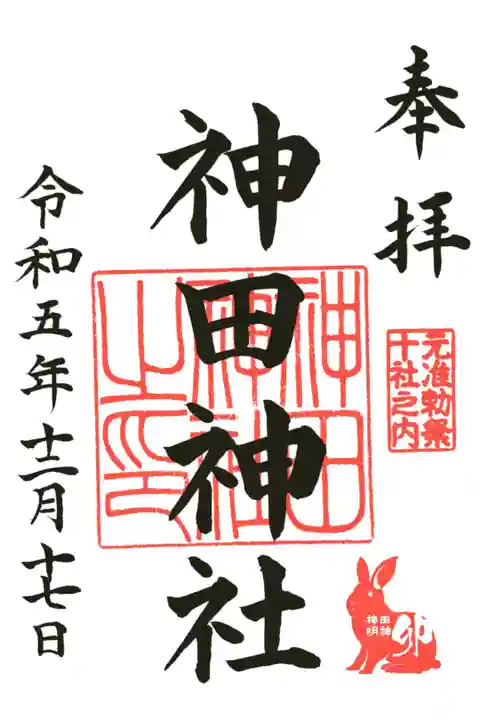 奉拝
元准勅祭
十社之内
卯
神田神社
神田
神社
之印
令和五年十二月十七日